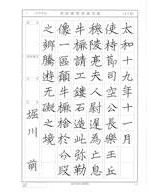 太和十九年十一月
使持節司空公長樂王丘
穆陵亮夫人尉遲為亡息
牛橛請工鏤石造此弥勒
像一區願牛橛捨於分段
之鄉騰遊无礙之境
堀川 萌